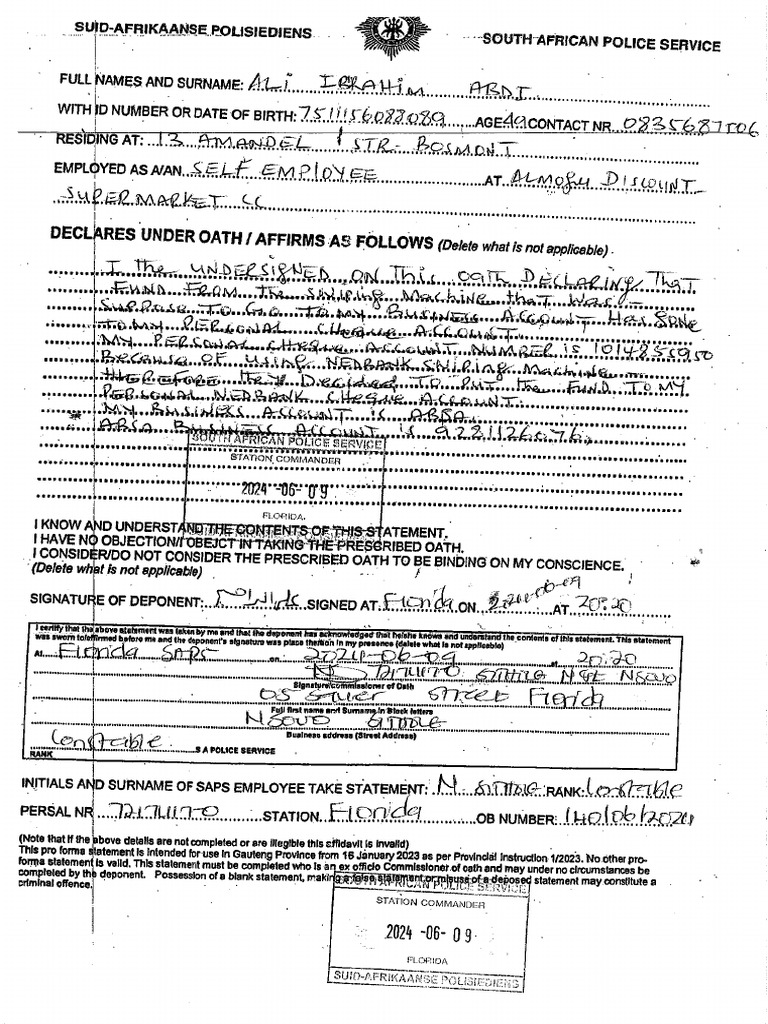 SUID-AFRIKAANSE POLISIEDIENS
SOUTH AFRICAN POLICE SERVICE
FULL NAMES AND SURNAME: ALI IBRAHIM ABDI
WITH ID NUMBER OR DATE OF BIRTH: 7511156088089 AGE 49 CONTACT NR 0835687506
RESIDING AT: 13 AMANDEL STR- BOSMONT
EMPLOYED AS A/AN SELF EMPLOYEE AT ALMOGU DISCOUNT
SUPERMARKET CC
DECLARES UNDER OATH / AFFIRMS AS FOLLOWS (Delete what is not applicable)
I the UNDERSIGNED ON THIS OATH DECLARING THAT
FUND FROM the SWIPING MACHINE that WAS
SUPPOSE TO GO TO MY BUSINESS ACCOUNT HAS GONE
TO MY PERSONAL CHEQUE ACCOUNT
MY PERSONAL CHEQUE ACCOUNT NUMBER IS 1014855950
BECAUSE OF USING NEDBANK SWIPING MACHINE
THEREFORE they DECIDED TO PUT the FUND TO MY
PERSONAL NEDBANK CHEQUE ACCOUNT.
MY BUSINESS ACCOUNT IS ABSA.
ABSA BUSINESS ACCOUNT IS 9281126076.
SOUTH AFRICAN POLICE SERVICE
STATION COMMANDER
2024 -06- 09
FLORIDA
I KNOW AND UNDERSTAND THE CONTENTS OF THIS STATEMENT.
I HAVE NO OBJECTION/I OBEJCT IN TAKING THE PRESCRIBED OATH.
I CONSIDER/DO NOT CONSIDER THE PRESCRIBED OATH TO BE BINDING ON MY CONSCIENCE.
(Delete what is not applicable)
SIGNATURE OF DEPONENT: SIGNED AT Florida ON 2024-06-09 AT 20:20
I certify that the above statement was taken by me and that the deponent has acknowledged that he/she knows and understand the contents of this statement. This statement
was sworn to/affirmed before me and the deponent's signature was place thereon in my presence (delete what is not applicable)
At Florida SAPS on 2024-06-09 at 20:20
Signature/commissioner of Oath
05 Street Florida
Full first name and Surname in Block letters
NSOVO
Business address (Street Address)
Constable S A POLICE SERVICE
RANK
INITIALS AND SURNAME OF SAPS EMPLOYEE TAKE STATEMENT: N. RANK: Constable
PERSAL NR STATION Florida OB NUMBER: 140/06/2024
(Note that if the above details are not completed or are illegible this affidavit is invalid)
This pro forma statement is intended for use in Gauteng Province from 16 January 2023 as per Provincial Instruction 1/2023. No other pro-
forma statement is valid. This statement must be completed who is an ex officio Commissioner of oath and may under no circumstances be
completed by the deponent. Possession of a blank statement, making a false statement or misuse of a deposed statement may constitute a
criminal offence.
SOUTH AFRICAN POLICE SERVICE
STATION COMMANDER
2024 -06- 09
FLORIDA
SUID-AFRIKAANSE POLISIEDIENS